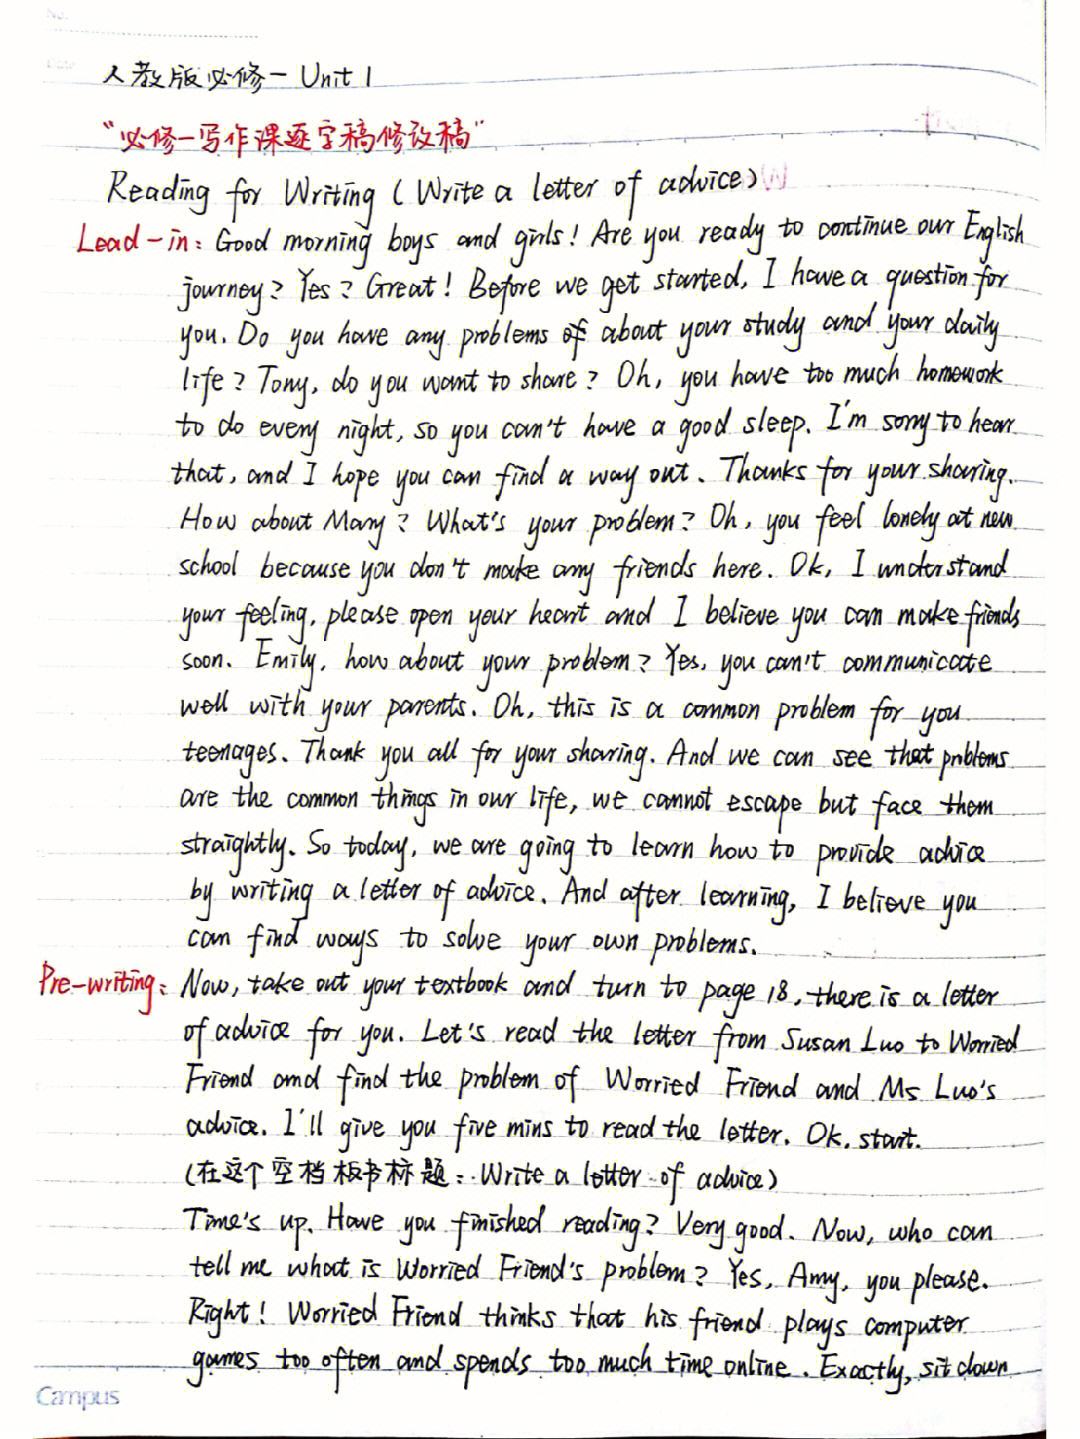 No.
Date
人教版必修一 Unit 1
“必修一写作课逐字稿修改稿”
Reading for Writing (Write a letter of advice)
Lead-in: Good morning boys and girls! Are you ready to continue our English
journey? Yes? Great! Before we get started, I have a question for
you. Do you have any problems of about your study and your daily
life? Tony, do you want to share? Oh, you have too much homework
to do every night, so you can't have a good sleep. I'm sorry to hear
that, and I hope you can find a way out. Thanks for your sharing.
How about Mary? What's your problem? Oh, you feel lonely at new
school because you don't make any friends here. Ok, I understand
your feeling, please open your heart and I believe you can make friends
soon. Emily, how about your problem? Yes, you can't communicate
well with your parents. Oh, this is a common problem for you
teenages. Thank you all for your sharing. And we can see that problems
are the common things in our life, we cannot escape but face them
straightly. So today, we are going to learn how to provide advice
by writing a letter of advice. And after learning, I believe you
can find ways to solve your own problems.
Pre-writing: Now, take out your textbook and turn to page 18, there is a letter
of advice for you. Let's read the letter from Susan Luo to Worried
Friend and find the problem of Worried Friend and Ms Luo's
advice. I'll give you five mins to read the letter. Ok, start.
(在这个空档板书标题: Write a letter of advice)
Time's up. Have you finished reading? Very good. Now, who can
tell me what is Worried Friend's problem? Yes, Amy, you please.
Right! Worried Friend thinks that his friend plays computer
games too often and spends too much time online. Exactly, sit down
Campus